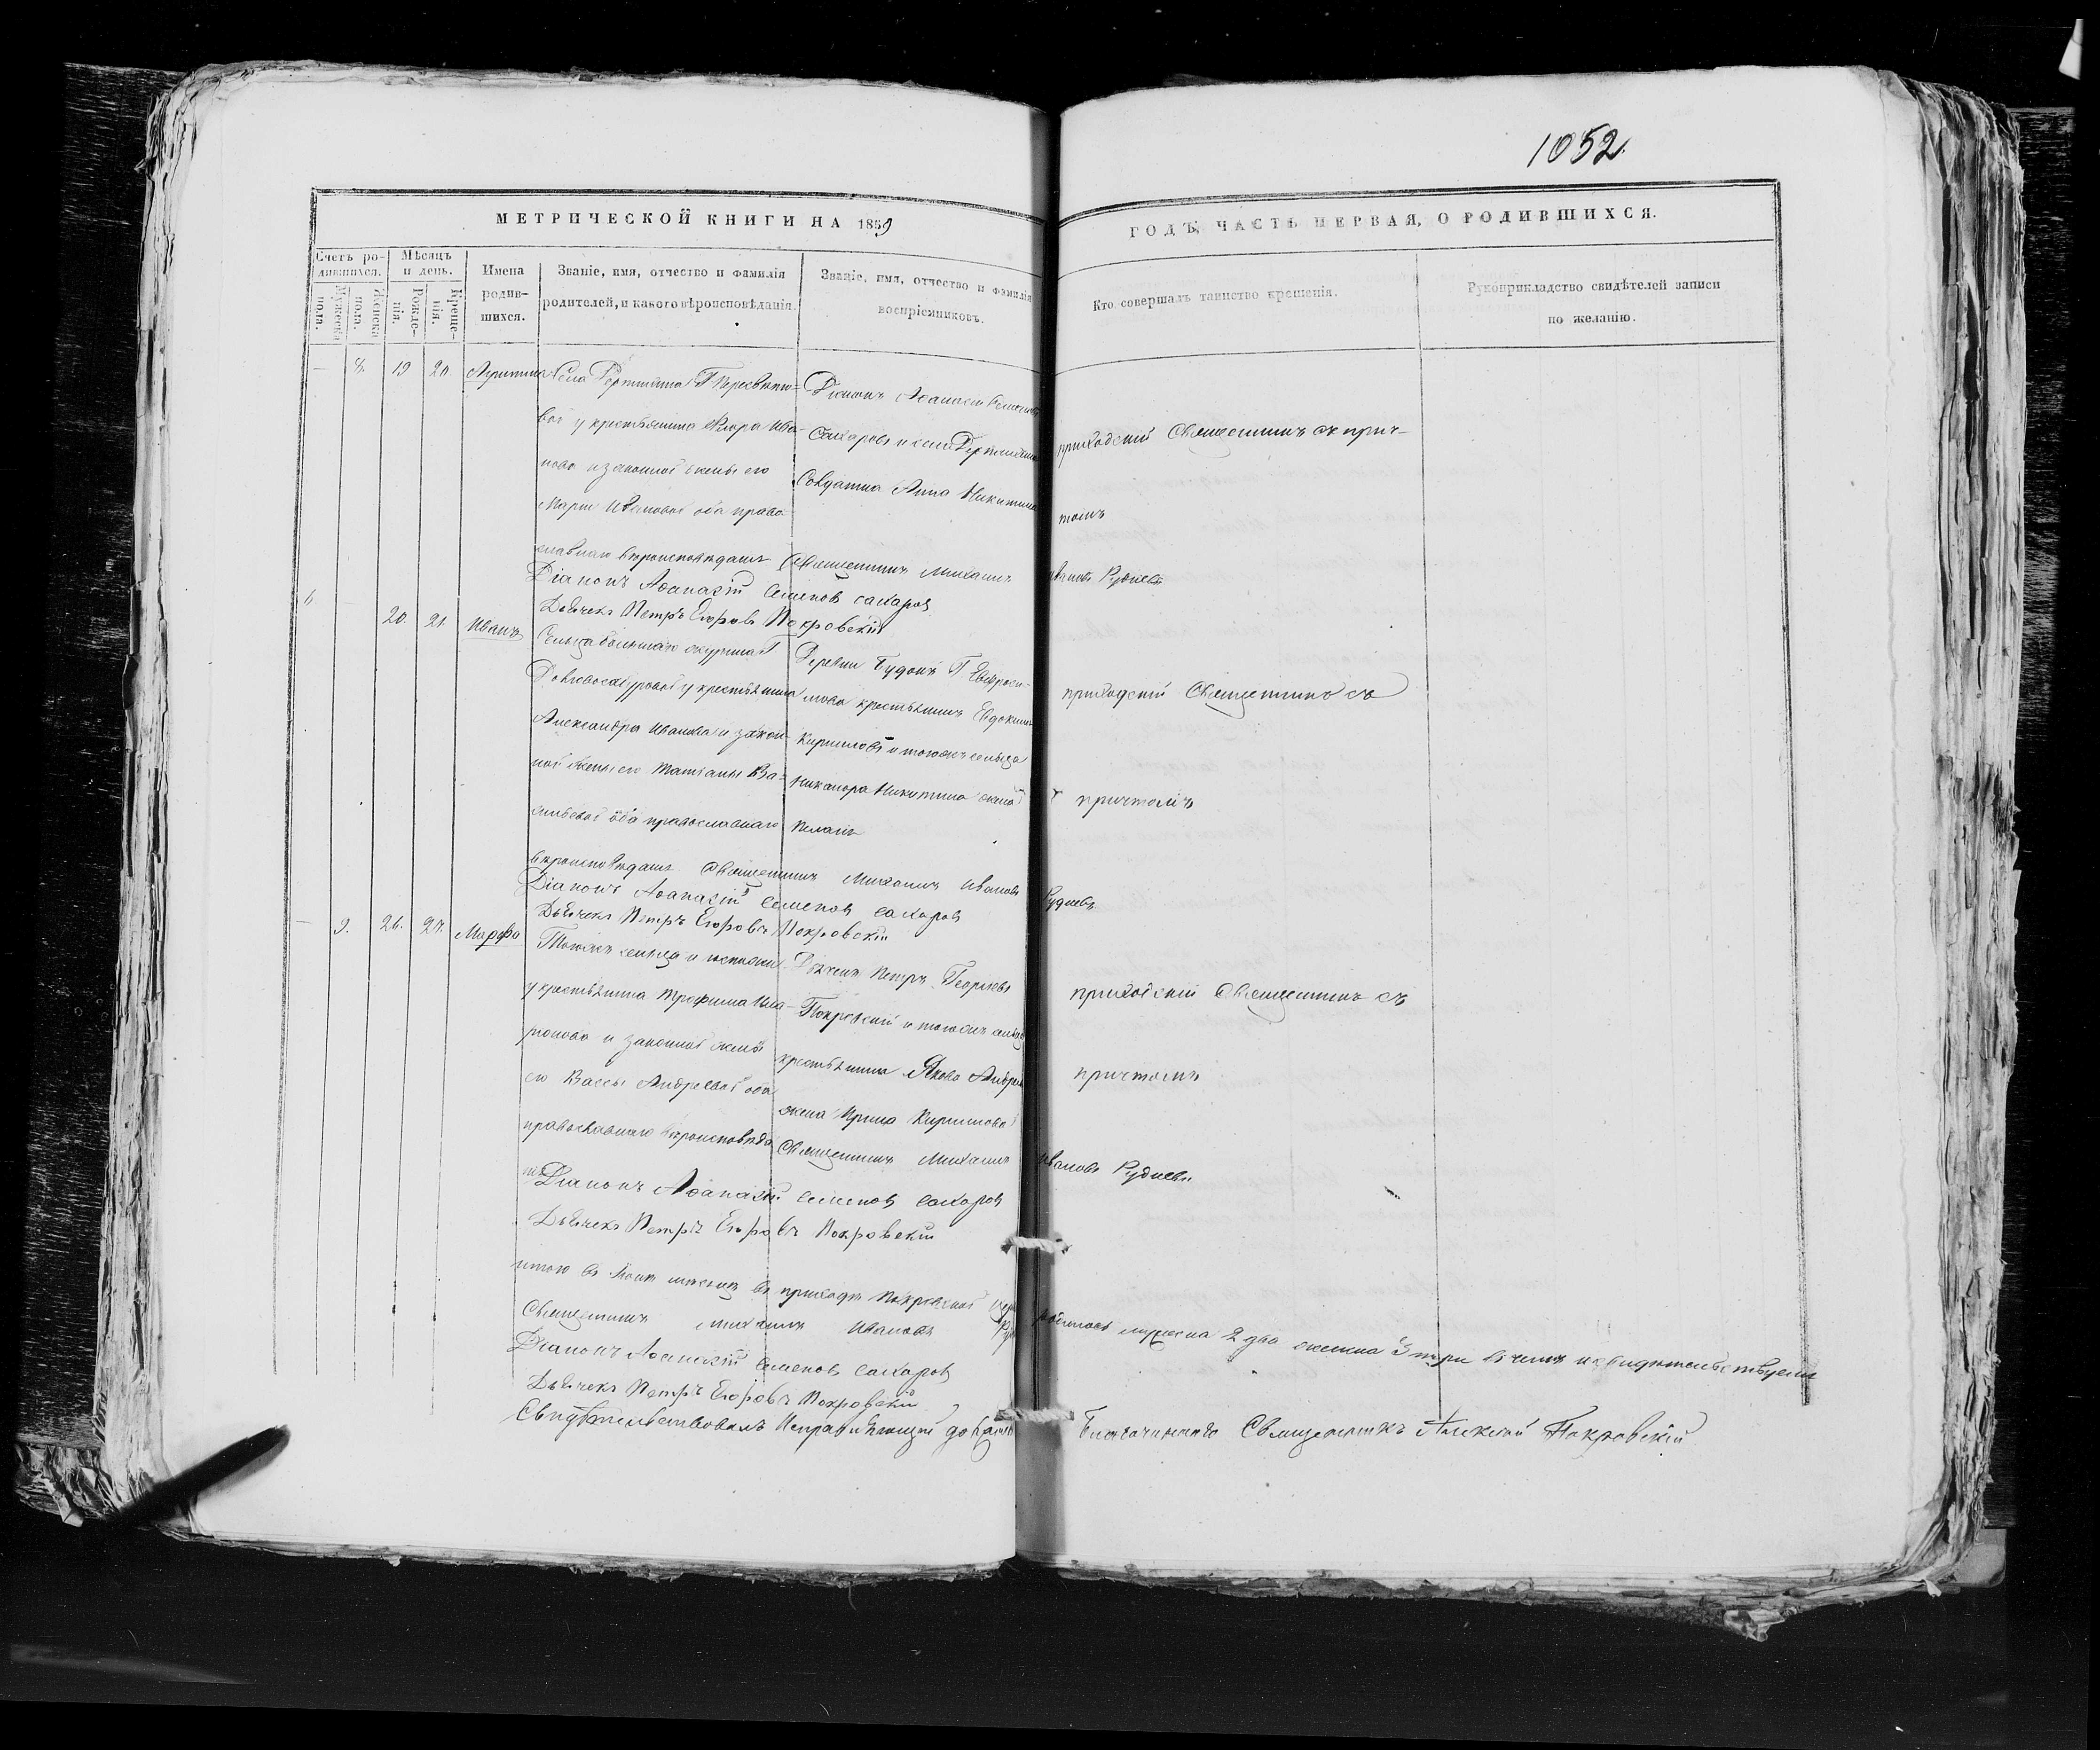 1052.
МЕТРИЧЕСКОЙ КНИГИ НА 1859
ГОДЪ, ЧАСТЬ ПЕРВАЯ, О РОДИВШИХСЯ.
Счетъ ро-
дившихся.
Мужеска
пола.
Женска
пола.
Мѣсяцъ
и день.
Рожде-
нія.
Креще-
нія.
Имена
родив-
шихся.
Званіе, имя, отчество и фамилія
родителей, и какого вѣроисповѣданія.
Званіе, имя, отчество и фамилія
воспріемниковъ.
Кто совершалъ таинство крещенія.
Рукоприкладство свидѣтелей записи
по желанію.
— 8. 19 20.
Села
у крестьянина Флора Ива-
нова и законной жены его
Маріи Ивановой оба право-
славнаго вѣроисповѣданія
Діаконъ Афанасій Семеновъ
Сахаровъ и села
Солдатка Анна Никитина
приходскій Священникъ съ прич-
томъ
Священникъ Михаилъ Ивановъ Рудневъ
Діаконъ Афанасій Семеновъ Сахаровъ
Дьячекъ Петръ Егоровъ Покровскій
6 — 20. 21. Иванъ
Сельца большаго
у крестьянина
Александра Иванова и закон-
ной жены его Татьяны Ва-
сильевой оба православнаго
вѣроисповѣданія
Деревни
крестьянинъ Евдокимъ
Кириловъ и тогожъ сельца
Никанора Никитина жена
приходскій Священникъ съ
причтомъ
Священникъ Михаилъ Ивановъ Рудневъ
Діаконъ Афанасій Семеновъ Сахаровъ
Дьячекъ Петръ Егоровъ Покровскій
— 9. 26. 27. Марфа
Тогожъ сельца и
у крестьянина Трофима Ила-
ріонова и законной жены
его Вассы Андреевой оба
православнаго вѣроисповѣда
нія
Дьячекъ Петръ Георгіевъ
Покровскій и тогожъ сельца
крестьянина Якова Андреева
жена Ирина Кирилова
приходскій Священникъ съ
причтомъ
Священникъ Михаилъ Ивановъ Рудневъ
Діаконъ Афанасій Семеновъ Сахаровъ
Дьячекъ Петръ Егоровъ Покровскій
итого въ Іюнѣ мѣсяцѣ въ приходѣ Покровской родилось мужеска 2 два женска 3 три въ чемъ и свидѣтельствуемъ
Священникъ Михаилъ Ивановъ
Діаконъ Афанасій Семеновъ Сахаровъ
Дьячекъ Петръ Егоровъ Покровскій
Свидѣтельствовалъ Исправляющій должность Благочиннаго Священникъ Алексій Покровскій